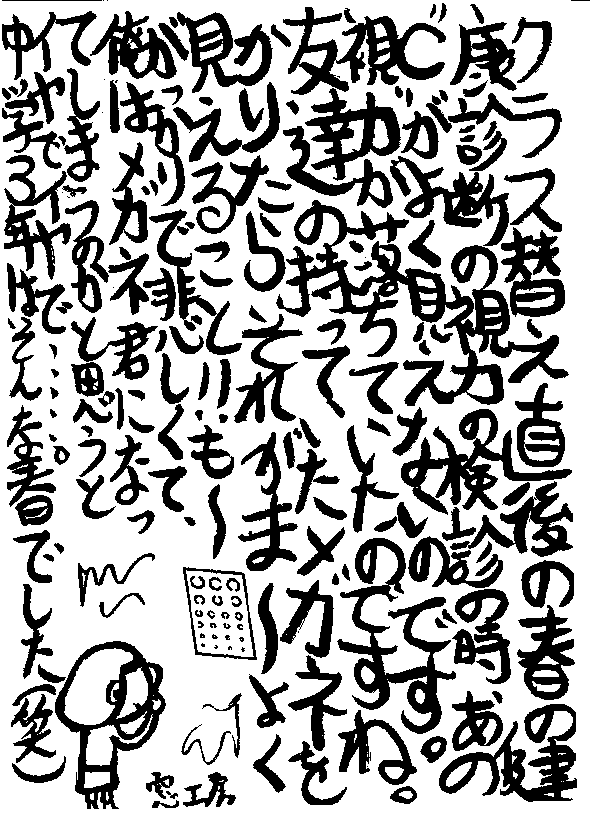 クラス替え直後の春の健
康診断の視力の検診の時、あの
"C"がよく見えないのです。
視力が落ちていたのですね。
友達の持っていたメガネを
かりたら、それがま〜よく
見えること!!も〜
がっかりで悲しくて、
俺はメガネ君になっ
てしまうのかと思うと
イヤでイヤで……。
中学3年はそんな春でした(笑)
窓工房